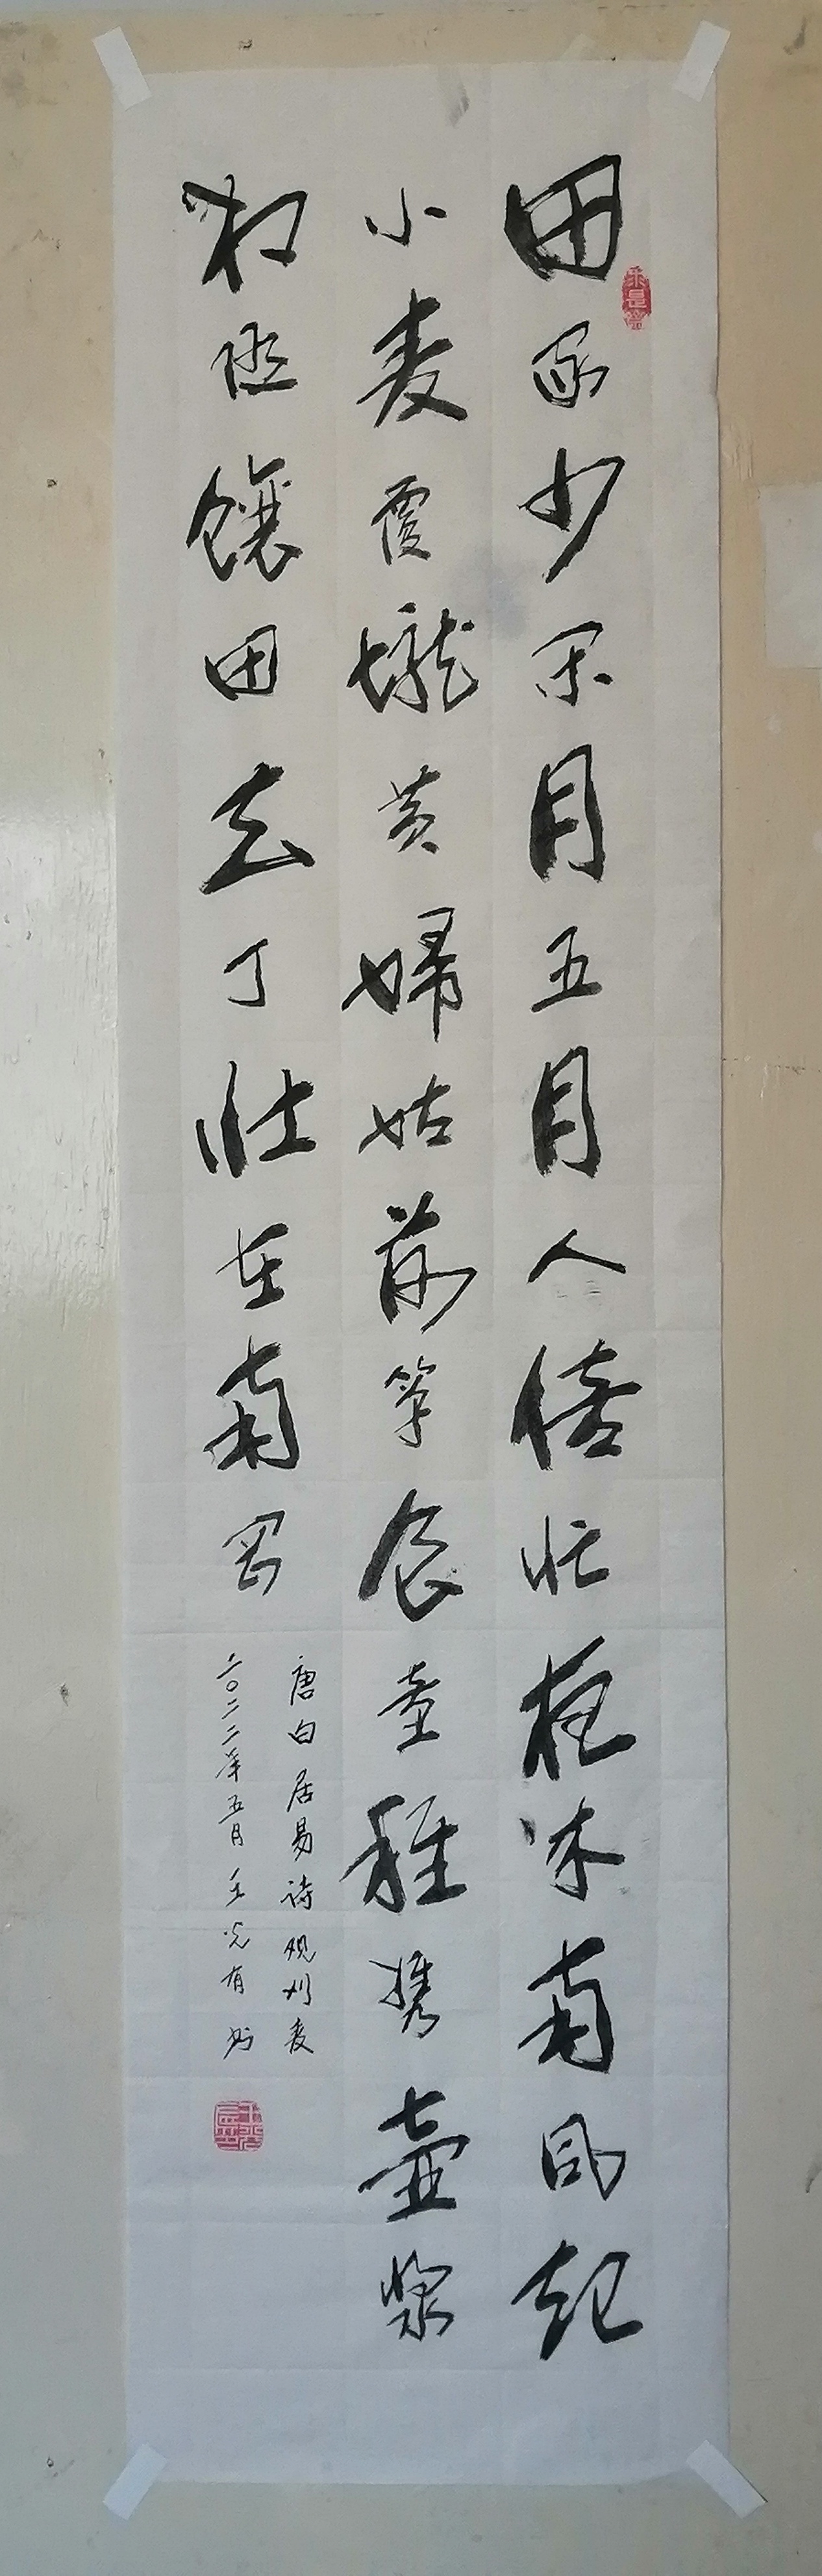 田家少闲月五月人倍忙夜来南风起
小麦覆壠黄婦姑荷箪食童稚携壺浆
相随饟田去丁壮在南冈
唐白居易诗观刈麦
二〇二二年五月王光有书